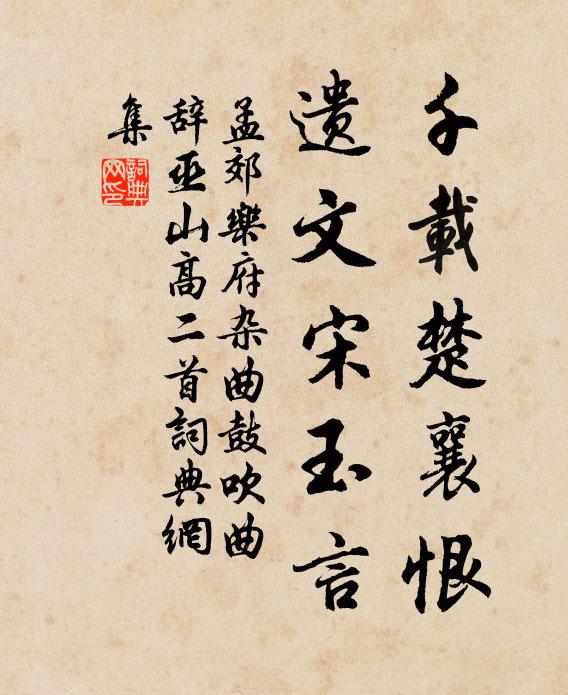 千載楚襄恨
遗文宋玉言
孟郊樂府杂曲鼓吹曲
辞巫山高二首詞典網
集
詞典网印